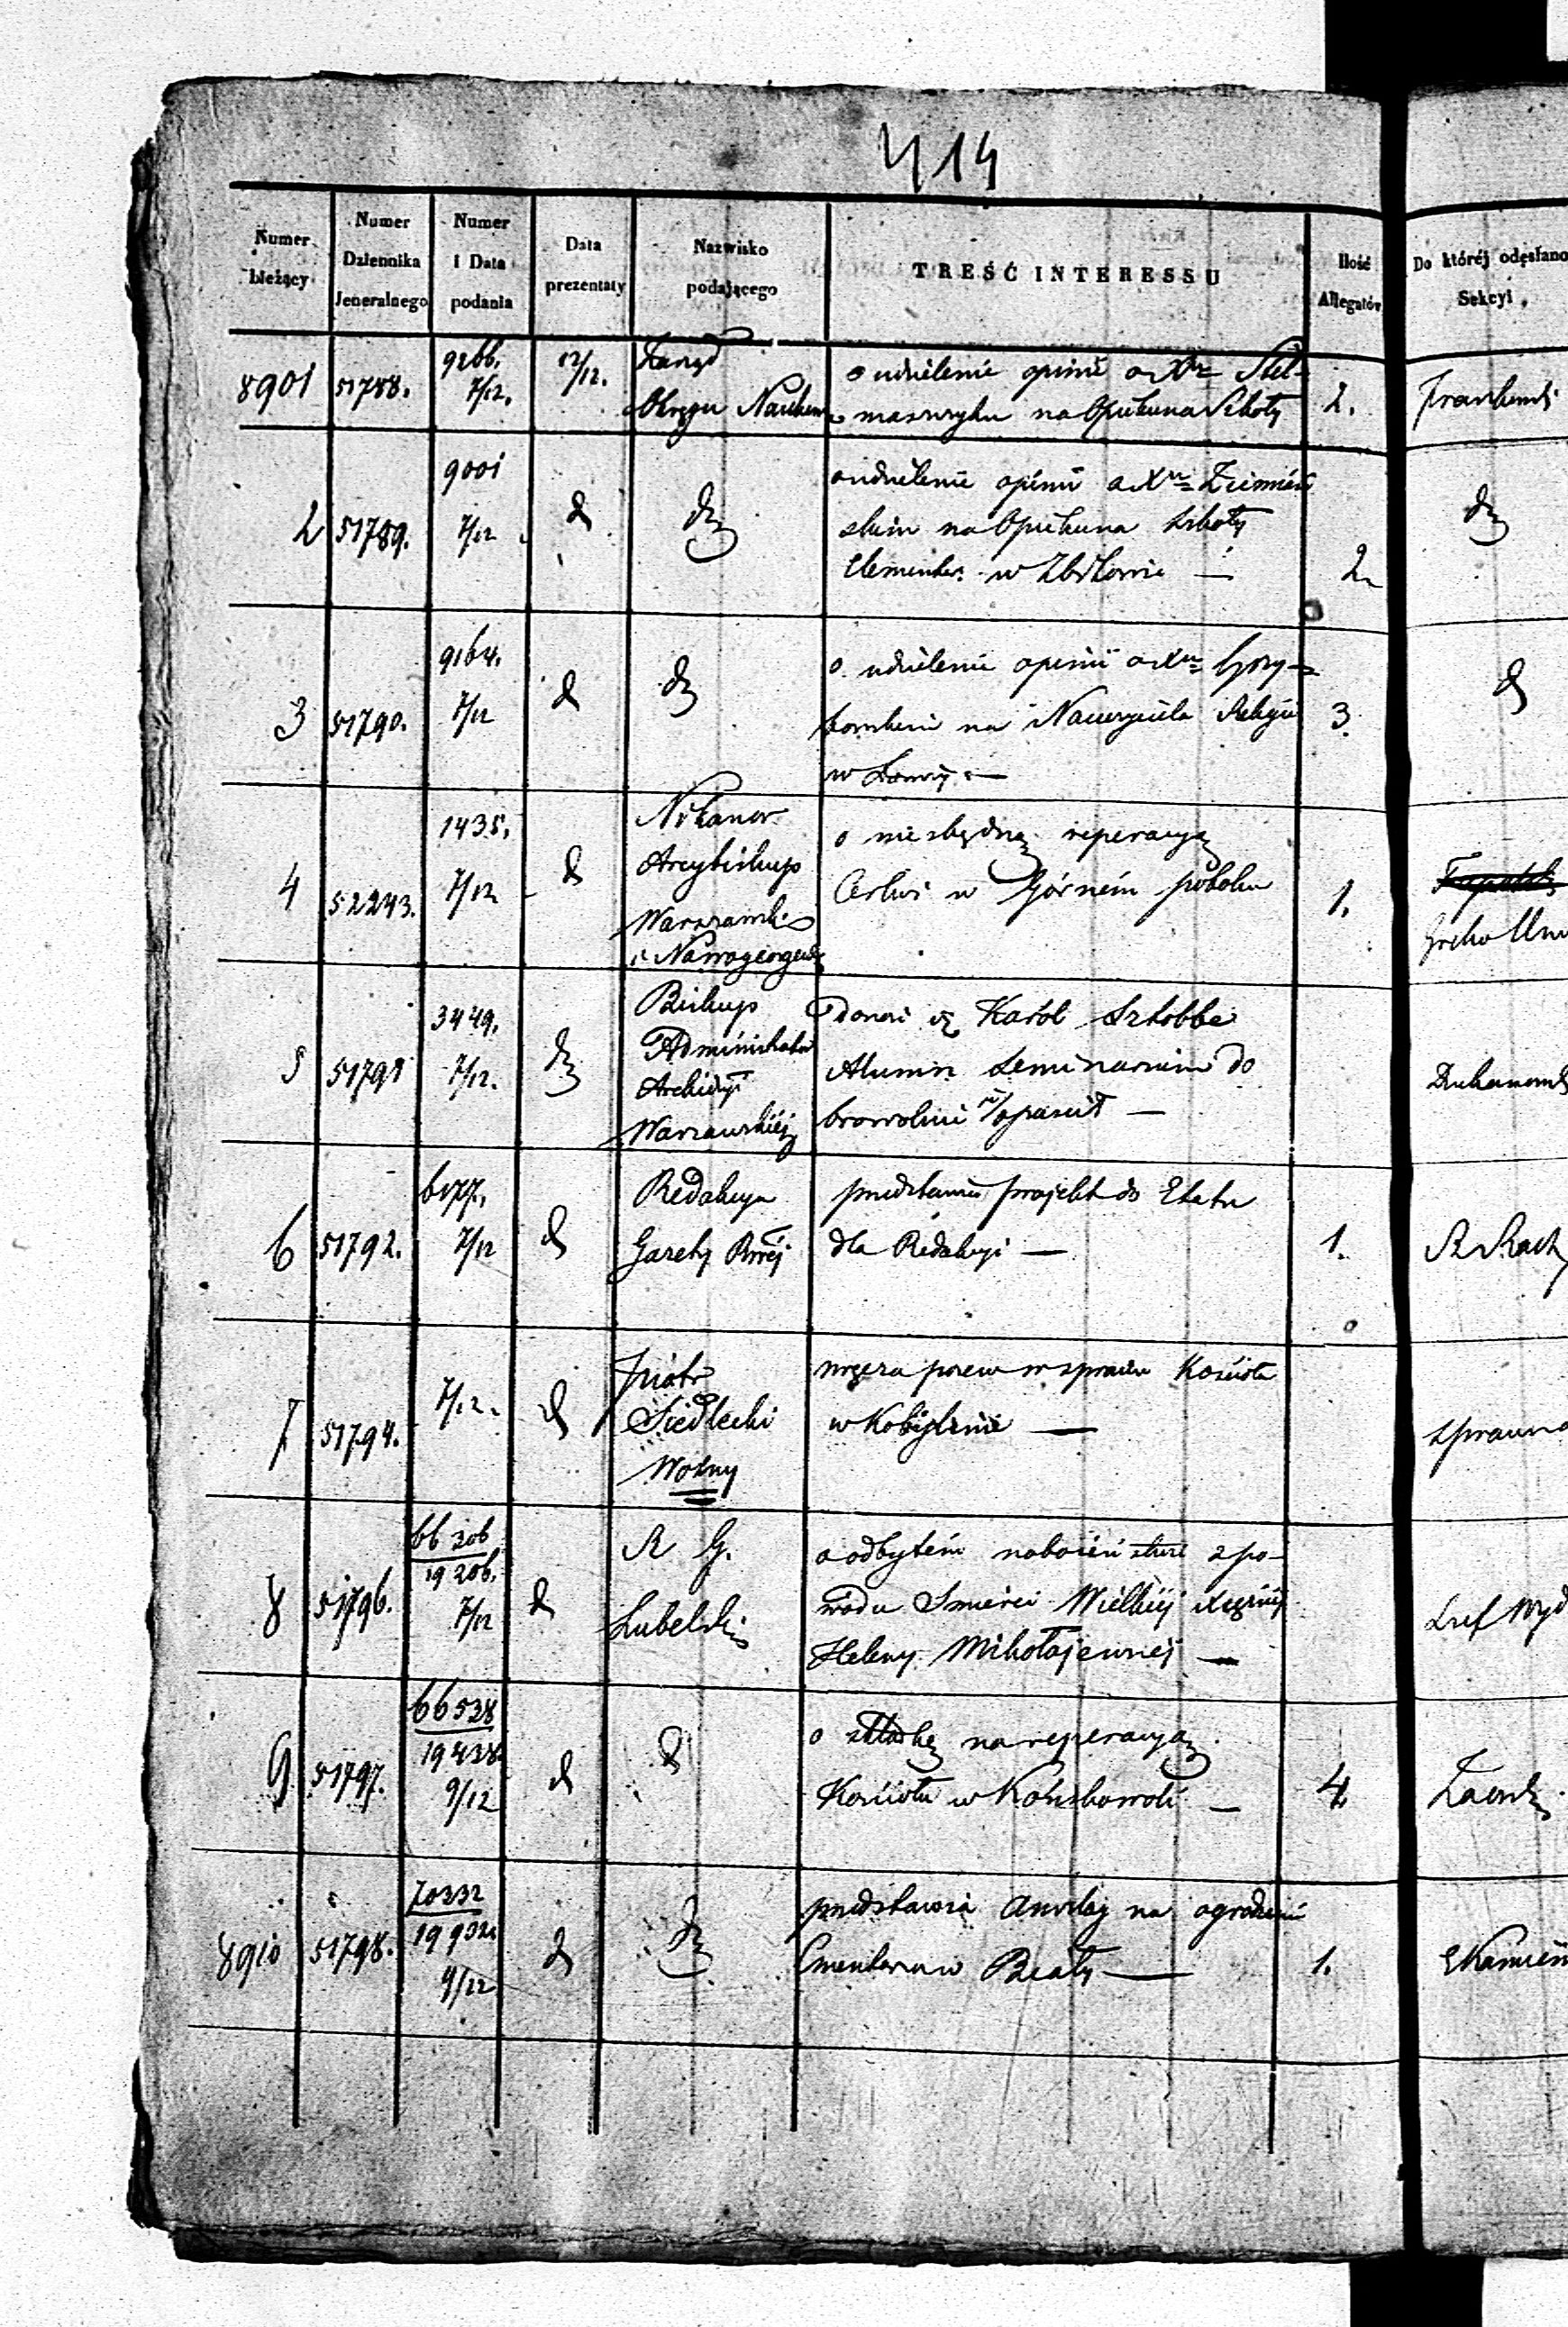 414
Numer bieżący
Numer Dziennika Jeneralnego
Numer i Data podania
Data prezentaty
Nazwisko podającego
TREŚĆ INTERESSU
Ilość Allegatów
Do któréj odęsłano Sekcyi
8901 51788. 9266. 7/12. 12/12. Zarząd
Okręgu Naukow
o udzielenie opinii o Xdzu Stel-
maszczyku na Opiekuna Szkoły
2.
2 51789. 9001 7/12 d d
o udzielenie opinii o Xdzu
na Opiekuna Szkoły
Elementar. w
2
d
3 51790. 9164. 7/12 d d
o udzielenie opinii o Xdzu
na Nauczyciela Religii
w
3
d
4 52243. 1435. 7/12 d
Nikanor
Arcybiskup
Warszawski
i Nawogeorgews
o niezbędną reperacyą
Cerkwi w Górném
1.
Greko Uni
5 51791 3449. 7/12. d
Biskup
Administrator
Archidyi
Warszawskiéj
Donosi iż Karól Szkobbe
Alumn Seminarium do
browolnie opuścił —
Duchowni
6 51792. 6177. 7/12 d
Redakcya
Gazety Rząj
przedstawia projekt do Etatu
dla Redakcyi —
1.
7 51794. 7/12. d
Piotr
Siedlecki
Woźny
wręcza pozew w sprawie Kościoła
w Kobylinie —
8 51796. 66206 19206. 7/12 d
R G.
Lubelski
o odbytém nabożeństwie z po-
wodu Smierci Wielkiéj Xiężnéj
Heleny Mikołajewnéj —
Szef Wyd
9 51797. 66528 19438 9/12 d d
o składkę na reperacyą
Kościoła w Końskowoli —
4
8910 51798. 70332 19932 9/12 d d
przedstawia anszlag na ogrodzenie
Cmentarza w Biały —
1.